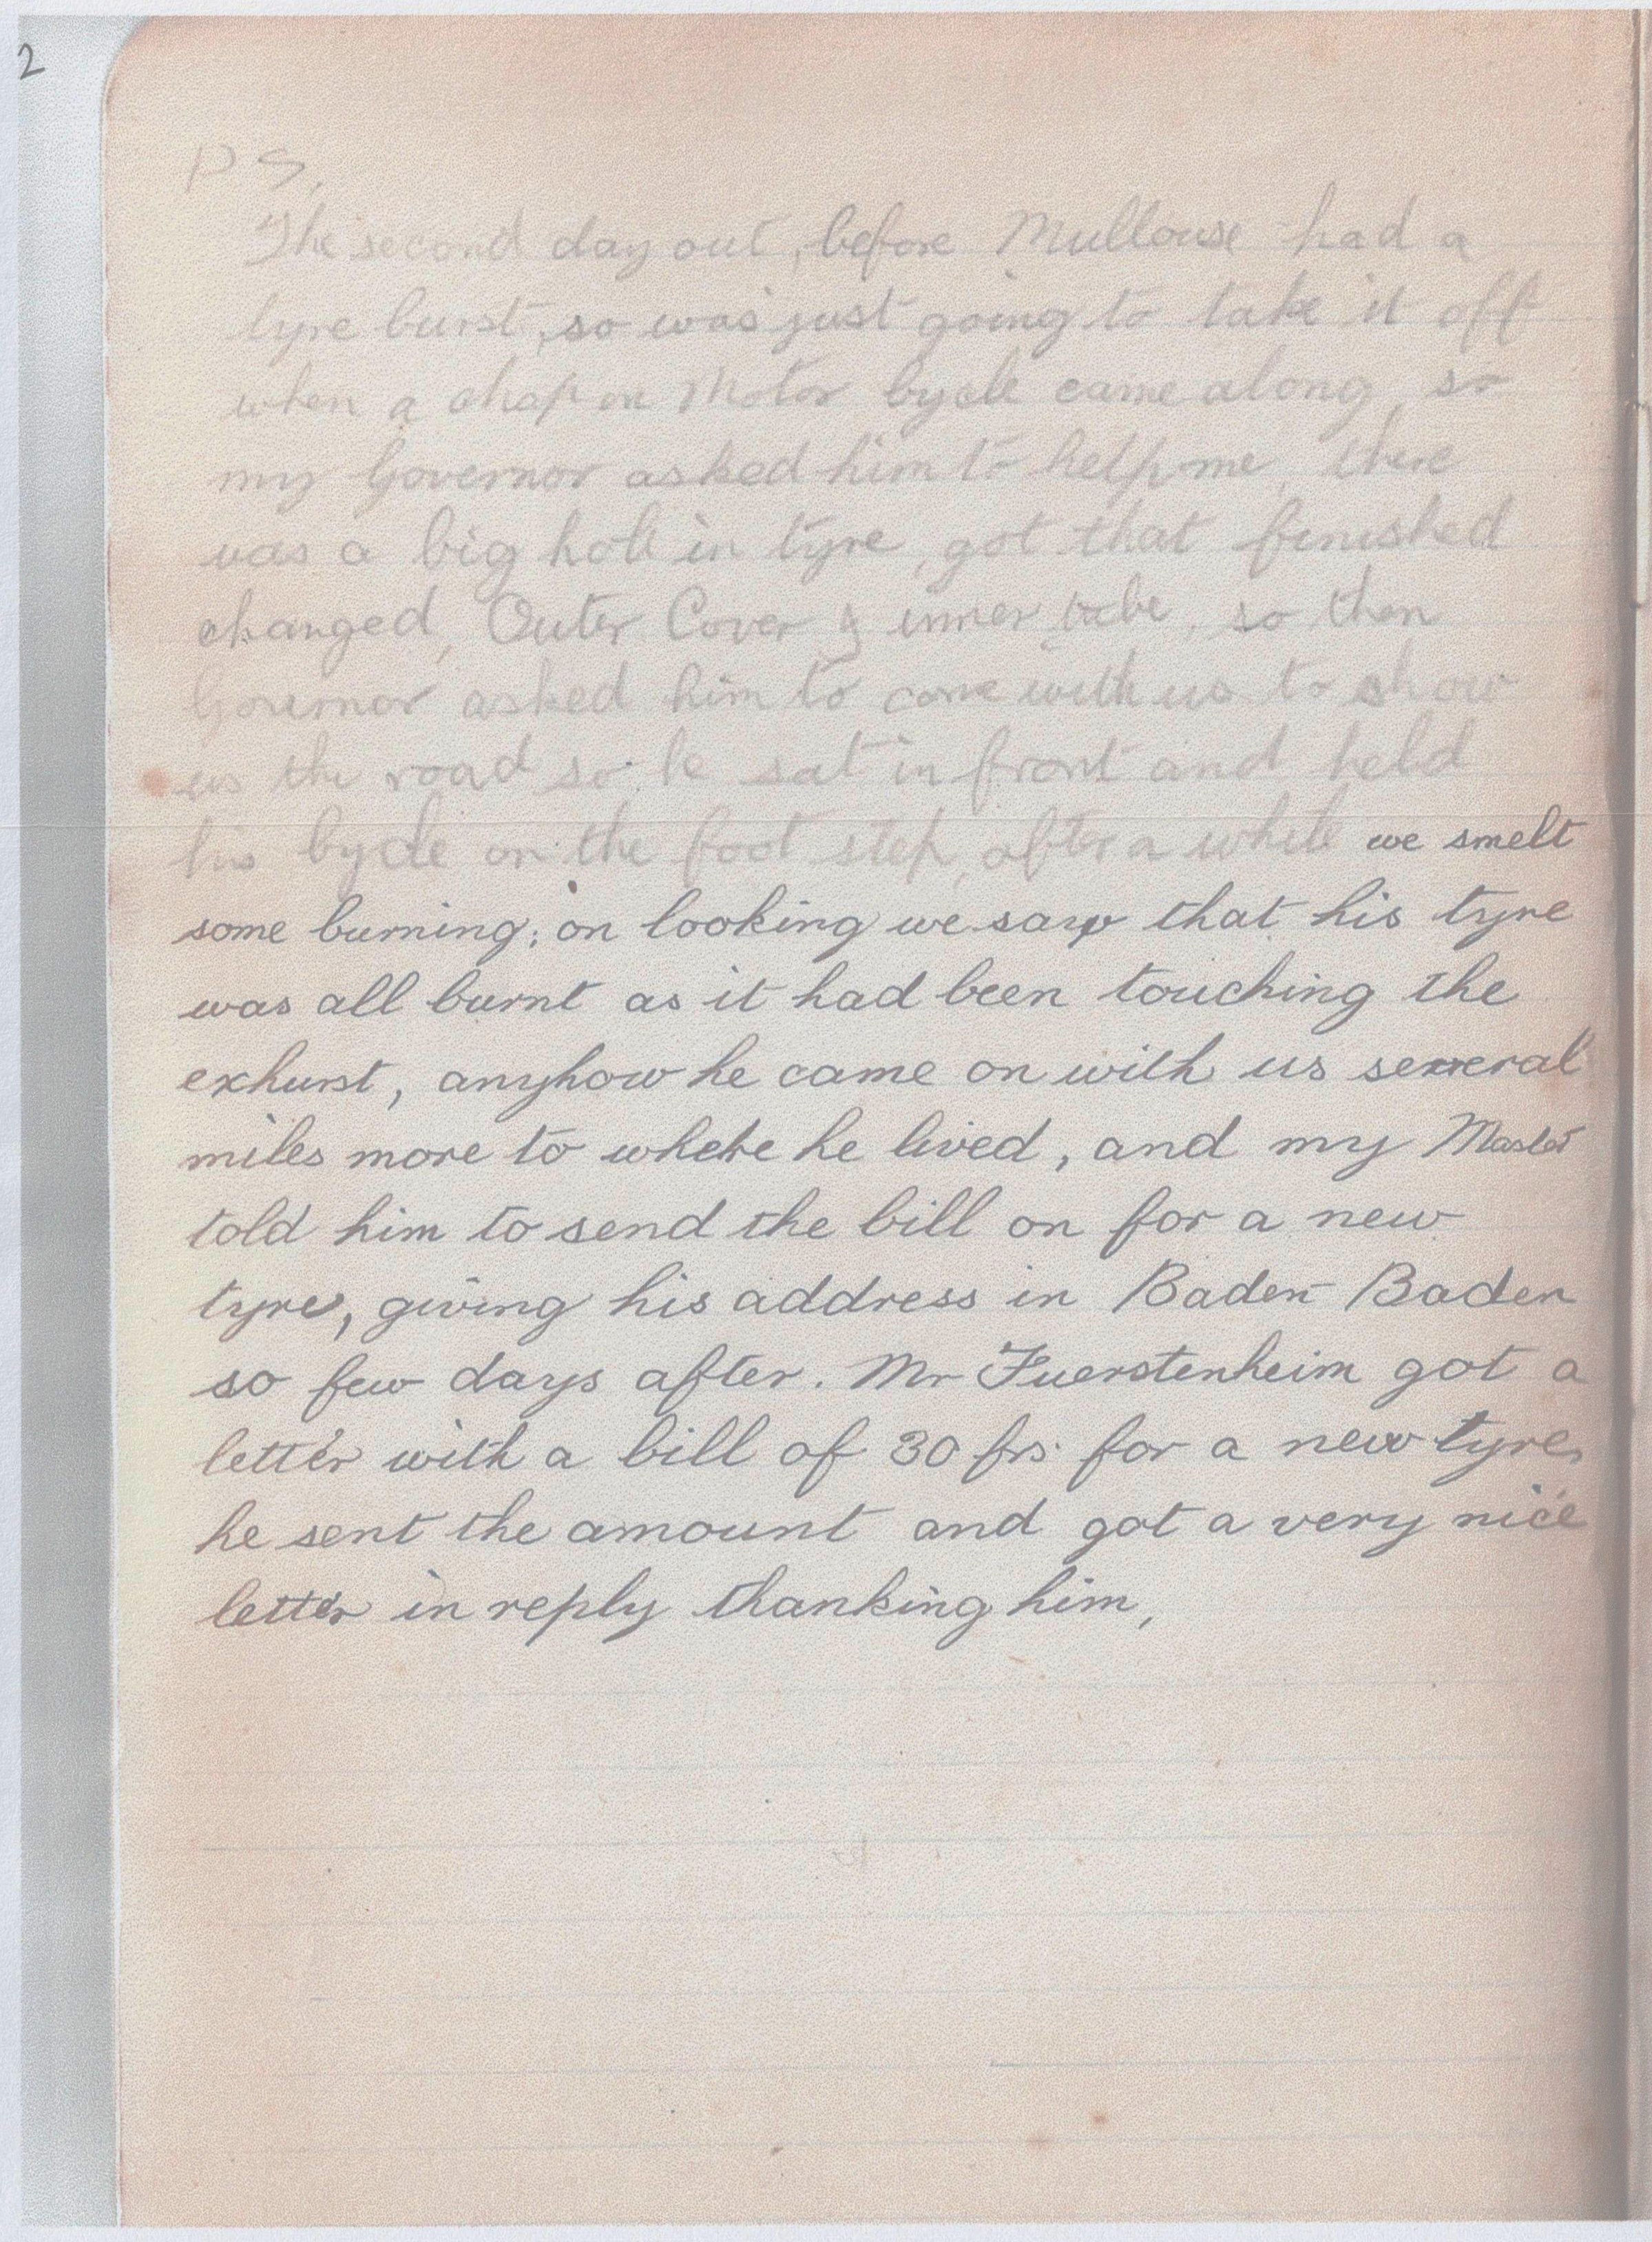 2
PS,
The second day out, before Mullouse had a
tyre burst, so was just going to take it off
when a chap on Motor bycle came along, so
my Governor asked him to help me, there
was a big hole in tyre, got that finished
changed, Outer Cover & inner tube, so then
Governor asked him to come with us to show
us the road so he sat in front and held
his bycle on the foot step, after a while we smelt
some burning; on looking we saw that his tyre
was all burnt as it had been touching the
exhurst, anyhow he came on with us several
miles more to where he lived, and my Master
told him to send the bill on for a new
tyre, giving his address in Baden-Baden
so few days after. Mr Fuerstenheim got a
letter with a bill of 30 frs. for a new tyre,
he sent the amount and got a very nice
letter in reply thanking him,